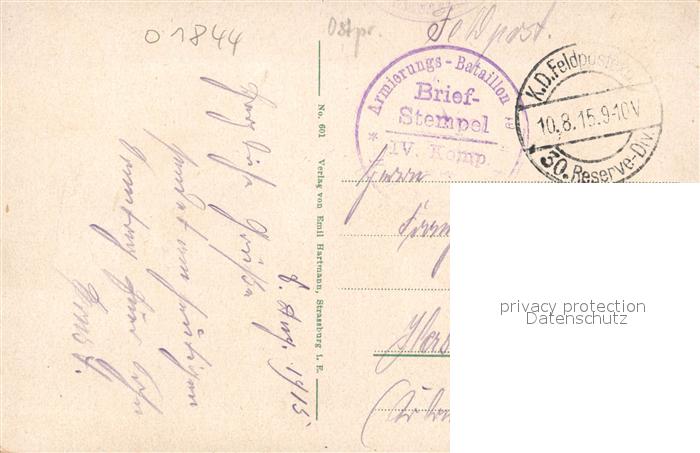 01844
Ostpr.
Feldpost.
Armierungs-Bataillon
Brief-
Stempel
* IV. Komp.
K.D.Feldpost
10.8.15.9-10V
30.Reserve-Div.
No. 601 Verlag von Emil Hartmann, Strassburg i. E.
8. Aug. 1915
Herzliche Grüße
sendet vom heutigen
Sonntag Euer Sohn
Herrn
privacy protection
Datenschutz